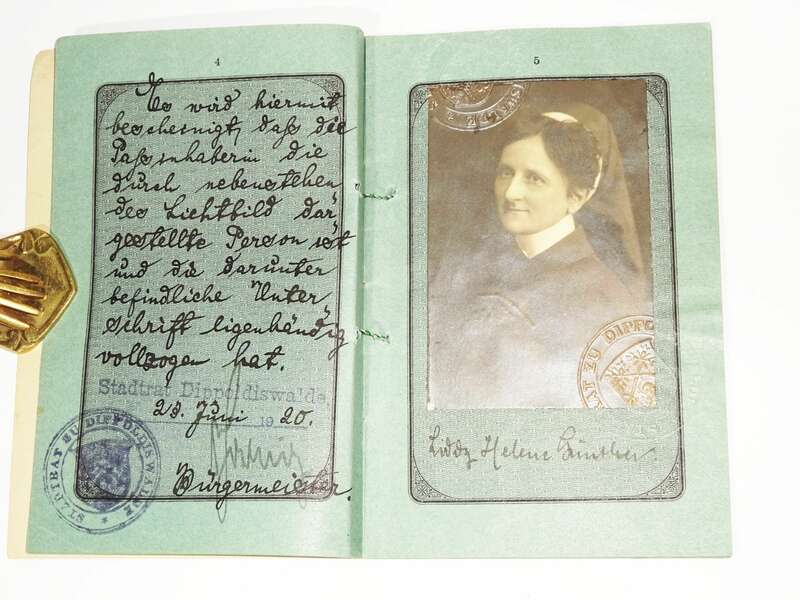 4
Es wird hiermit
bescheinigt, daß die
Paßinhaberin die
durch nebenstehen
des Lichtbild dar
gestellte Person ist
und die darunter
befindliche Unter
schrift eigenhändig
vollzogen hat.
Stadtrat Dippoldiswalde,
23. Juni 1920.
Bürgermeister.
STADTRAT ZU DIPPOLDISWALDE
5
RAT ZU DIPPOLD
Liddy Helene Günther.